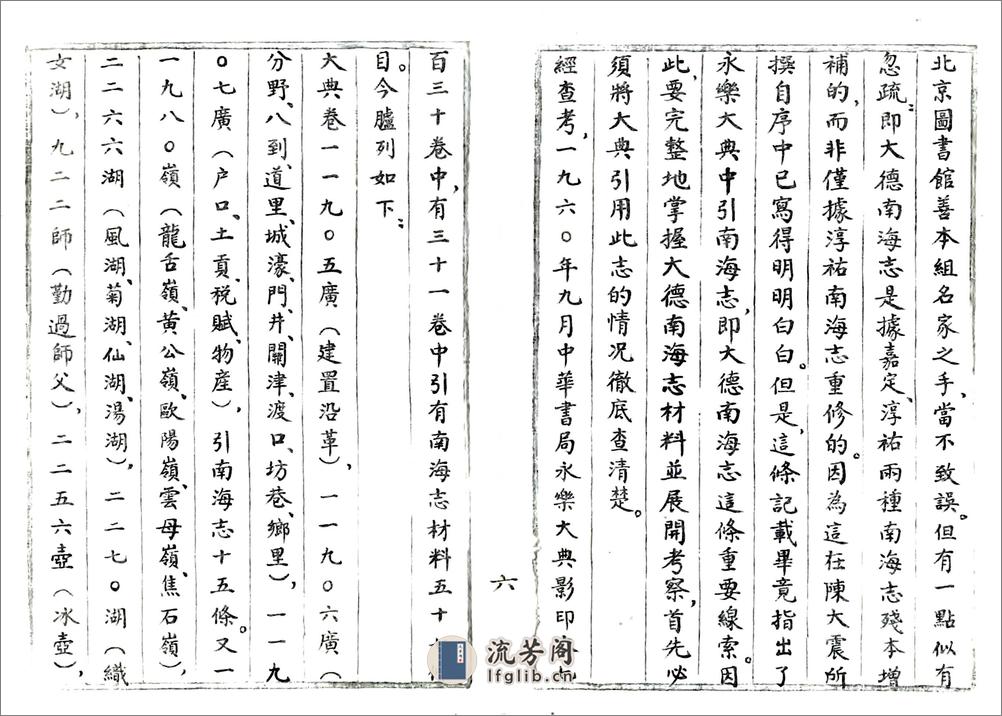 北京圖書館善本組名家之手,當不致誤。但有一點似有
忽疏:即大德南海志是據嘉定、淳祐兩種南海志殘本增
補的,而非僅據淳祐南海志重修的。因為這在陳大震所
撰自序中已寫得明明白白。但是,這條記載畢竟指出了
永樂大典中引南海志,即大德南海志這條重要線索。因
此,要完整地掌握大德南海志材料並展開考察,首先必
須將大典引用此志的情况徹底查清楚。
經查考,一九六〇年九月中華書局永樂大典影印
六
百三十卷中,有三十一卷中引有南海志材料五十
目。今臚列如下:
大典卷一一九〇五廣(建置沿革),一一九〇六廣(
分野、八到、道里、城濠、門、井、關津、渡口、坊巷、鄉里),一一九
〇七廣(户口、土貢、税賦、物產),引南海志十五條。又一
一九八〇嶺(龍舌嶺、黄公嶺、歐陽嶺、雲母嶺、焦石嶺),
二二六六湖(風湖、菊湖、仙湖、湯湖),二二七〇湖(織
女湖),九二二師(勤過師父),二二五六壺(冰壺),
流芳阁
lfglib.cn